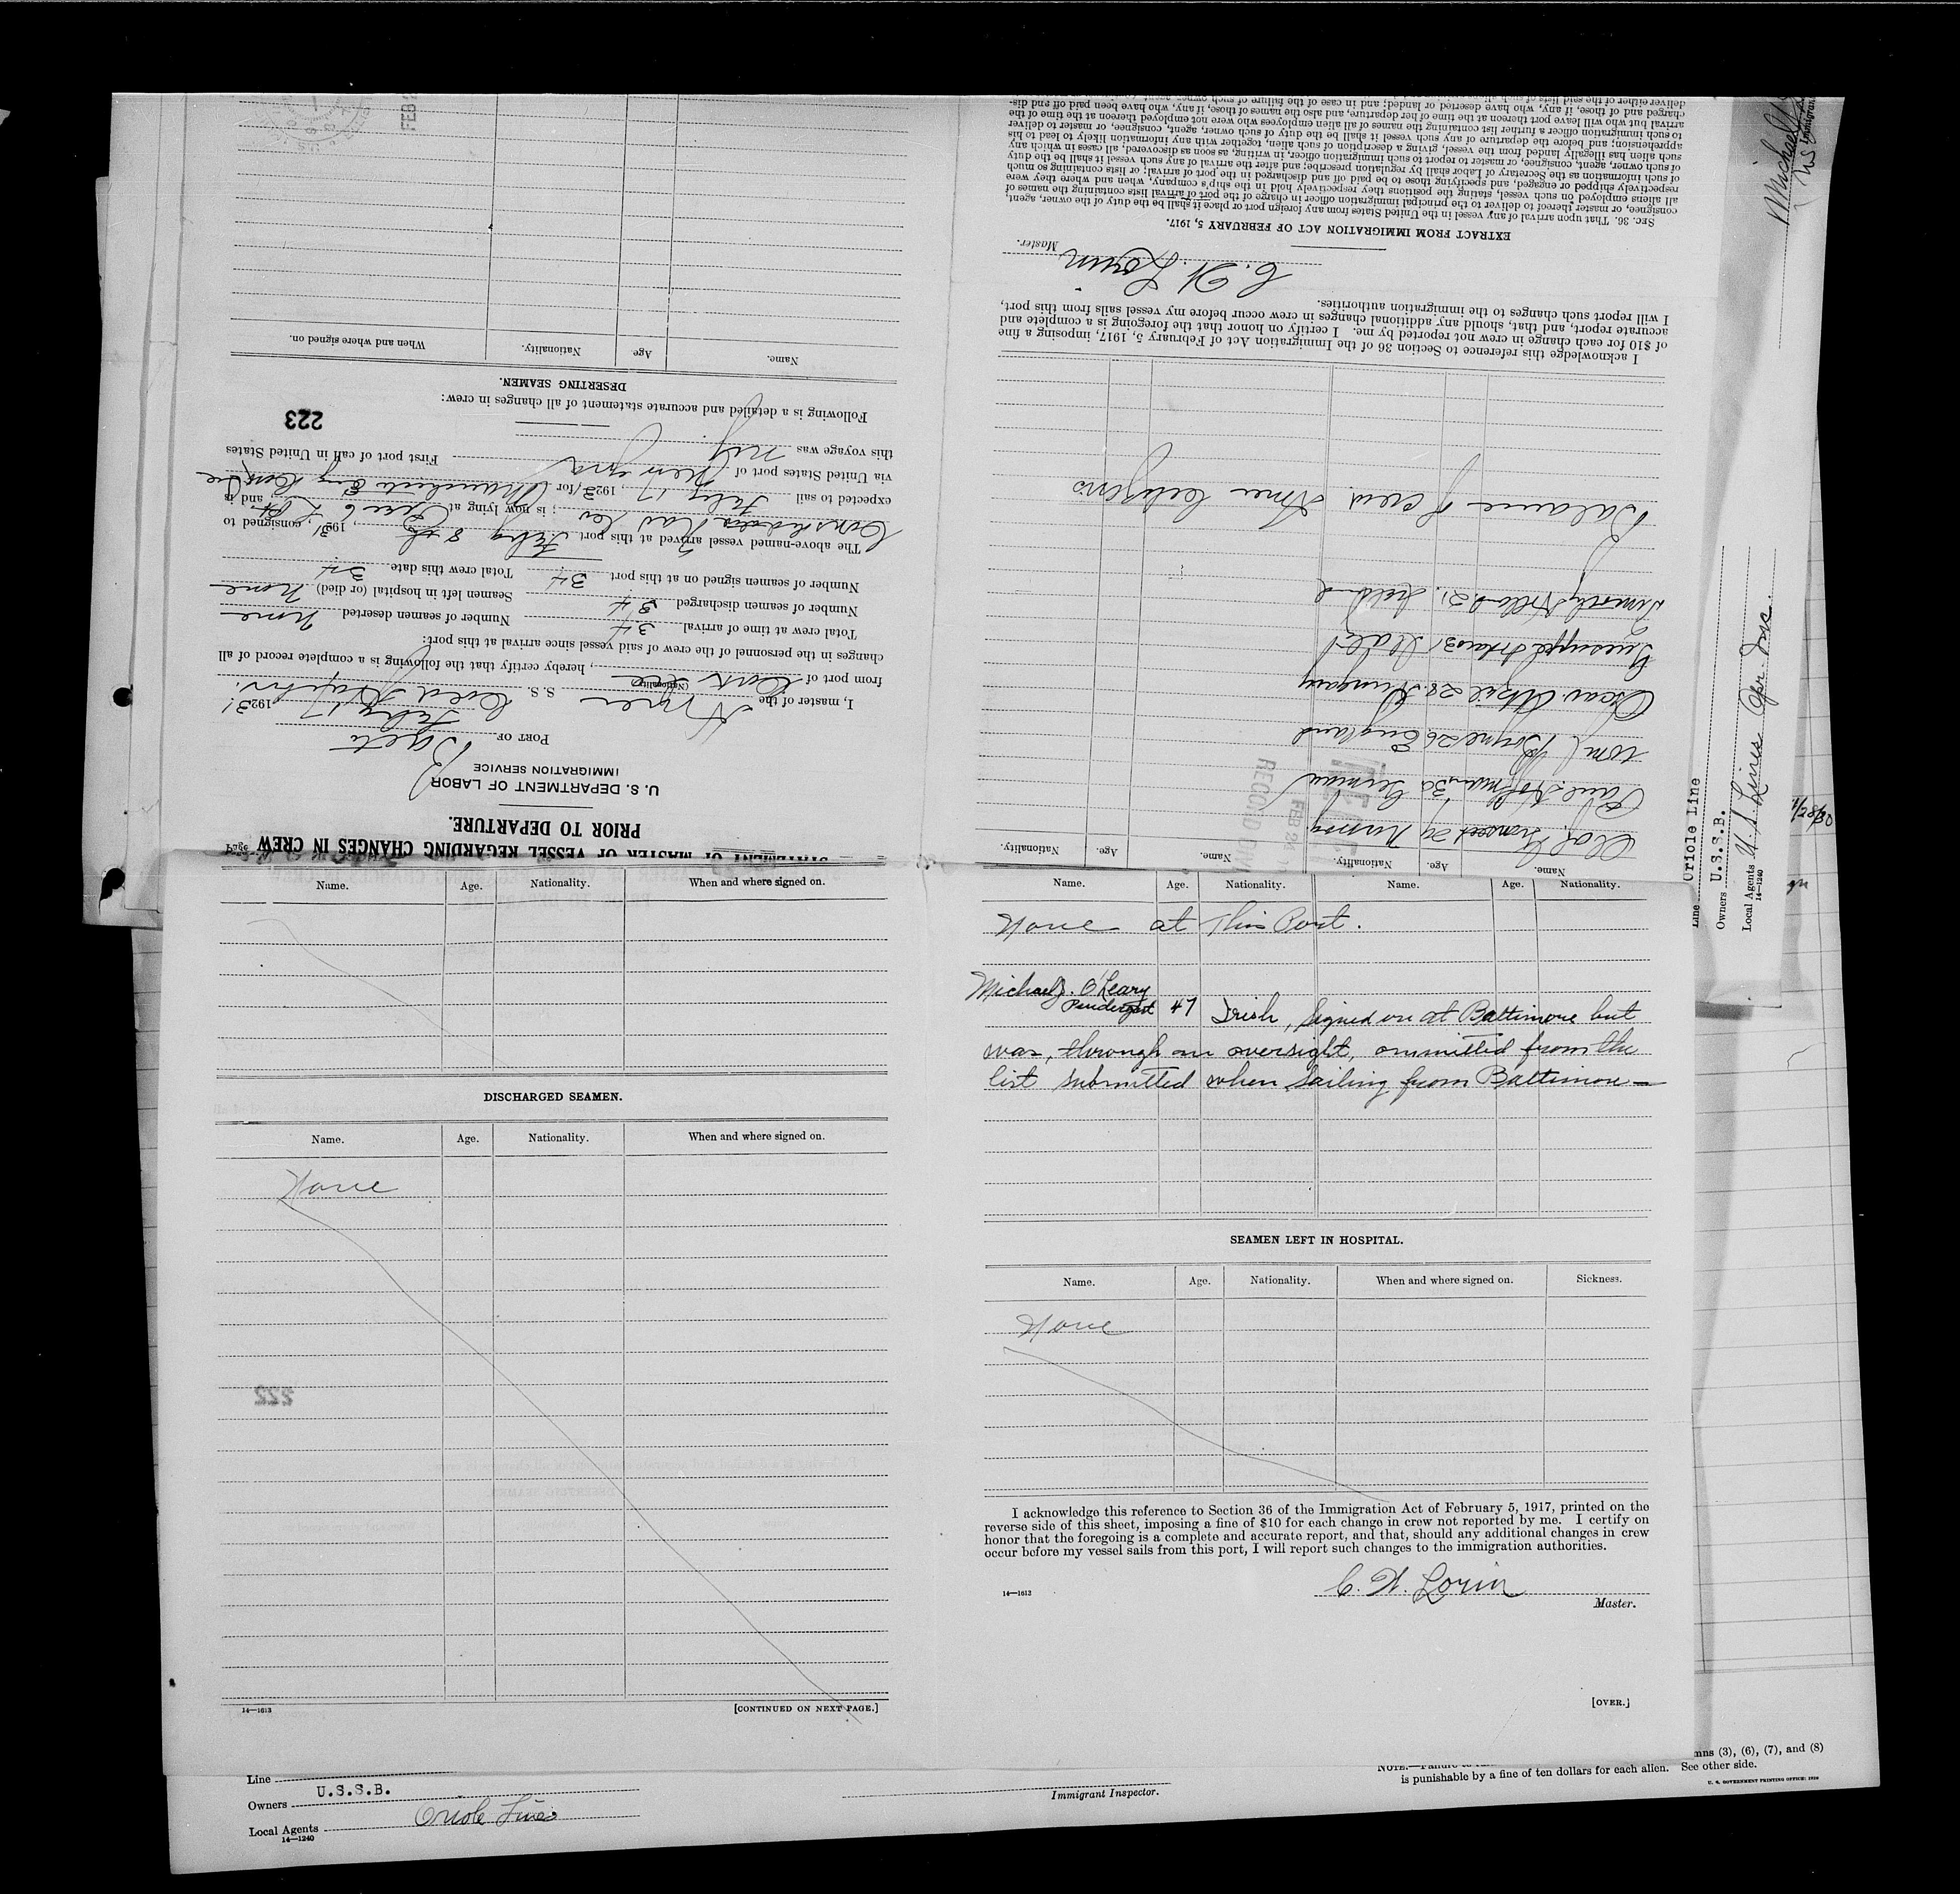 STATEMENT OF MASTER OF VESSEL REGARDING CHANGES IN CREW
PRIOR TO DEPARTURE.
U. S. DEPARTMENT OF LABOR
IMMIGRATION SERVICE
PORT OF
Feby 17 1923
I, master of the Amer S. S.
(Nationality)
from port of , hereby certify that the following is a complete record of all
changes in the personnel of the crew of said vessel since arrival at this port:
Total crew at time of arrival 34 Number of seamen deserted none
Number of seamen discharged 34 Seamen left in hospital (or died) none
Number of seamen signed on at this port 34 Total crew this date 34
The above-named vessel arrived at this port Feby 8th , 192 , consigned to
; is now lying at and is
expected to sail Feby 17 , 1923 for Manchester Eng
via United States port of New York First port of call in United States
this voyage was
Following is a detailed and accurate statement of all changes in crew:
223
DESERTING SEAMEN.
Name. Age Nationality. When and where signed on.
FEB 2
Name. Age. Nationality. Name. Age. Nationality.
Olaf 29 Norway
Paul Hoffman 30 German
Wm Boyne 26 England
Oscar 28 Hungary
31 Italy
Timothy Holland 21 Ireland
Balance of Crew Amer Citizens
I acknowledge this reference to Section 36 of the Immigration Act of February 5, 1917, imposing a fine
of $10 for each change in crew not reported by me. I certify on honor that the foregoing is a complete and
accurate report, and that, should any additional changes in crew occur before my vessel sails from this port,
I will report such changes to the immigration authorities.
C. H. Lorin
Master.
EXTRACT FROM IMMIGRATION ACT OF FEBRUARY 5, 1917.
SEC. 36. That upon arrival of any vessel in the United States from any foreign port or place it shall be the duty of the owner, agent,
consignee, or master thereof to deliver to the principal immigration officer in charge of the port of arrival lists containing the names of
all aliens employed on such vessel, stating the positions they respectively hold in the ship's company, when and where they were
respectively shipped or engaged, and specifying those to be paid off and discharged in the port of arrival; or lists containing so much
of such information as the Secretary of Labor shall by regulation prescribe; and after the arrival of any such vessel it shall be the duty
of such owner, agent, consignee, or master to report to such immigration officer, in writing, as soon as discovered, all cases in which any
such alien has illegally landed from the vessel, giving a description of such alien, together with any information likely to lead to his
apprehension; and before the departure of any such vessel it shall be the duty of such owner, agent, consignee, or master to deliver
to such immigration officer a further list containing the names of all alien employees who were not employed thereon at the time of the
arrival but who will leave port thereon at the time of her departure, and also the names of those, if any, who have been paid off and dis-
charged and of those, if any, who have deserted or landed; and in case of the failure of such owner, agent,
Line Oriole Line
Owners U.S.S.B.
Local Agents U. S. Lines Opr. Inc.
14—1240
Name. Age. Nationality. When and where signed on.
DISCHARGED SEAMEN.
Name. Age. Nationality. When and where signed on.
None
222
14—1613 [CONTINUED ON NEXT PAGE.]
Name. Age. Nationality. Name. Age. Nationality.
None at This Port.
Michael J. O'Leary
Pendergast 47 Irish, Signed on at Baltimore but
was, through an oversight, ommitted from the
list submitted when sailing from Baltimore—
SEAMEN LEFT IN HOSPITAL.
Name. Age. Nationality. When and where signed on. Sickness.
None
I acknowledge this reference to Section 36 of the Immigration Act of February 5, 1917, printed on the
reverse side of this sheet, imposing a fine of $10 for each change in crew not reported by me. I certify on
honor that the foregoing is a complete and accurate report, and that, should any additional changes in crew
occur before my vessel sails from this port, I will report such changes to the immigration authorities.
14—1613 C. H. Lorin
Master.
[OVER.]
Line
Owners U.S.S.B.
Local Agents Oriole Lines
14—1240
Immigrant Inspector.
mns (3), (6), (7), and (8)
is punishable by a fine of ten dollars for each alien. See other side.
U. S. GOVERNMENT PRINTING OFFICE: